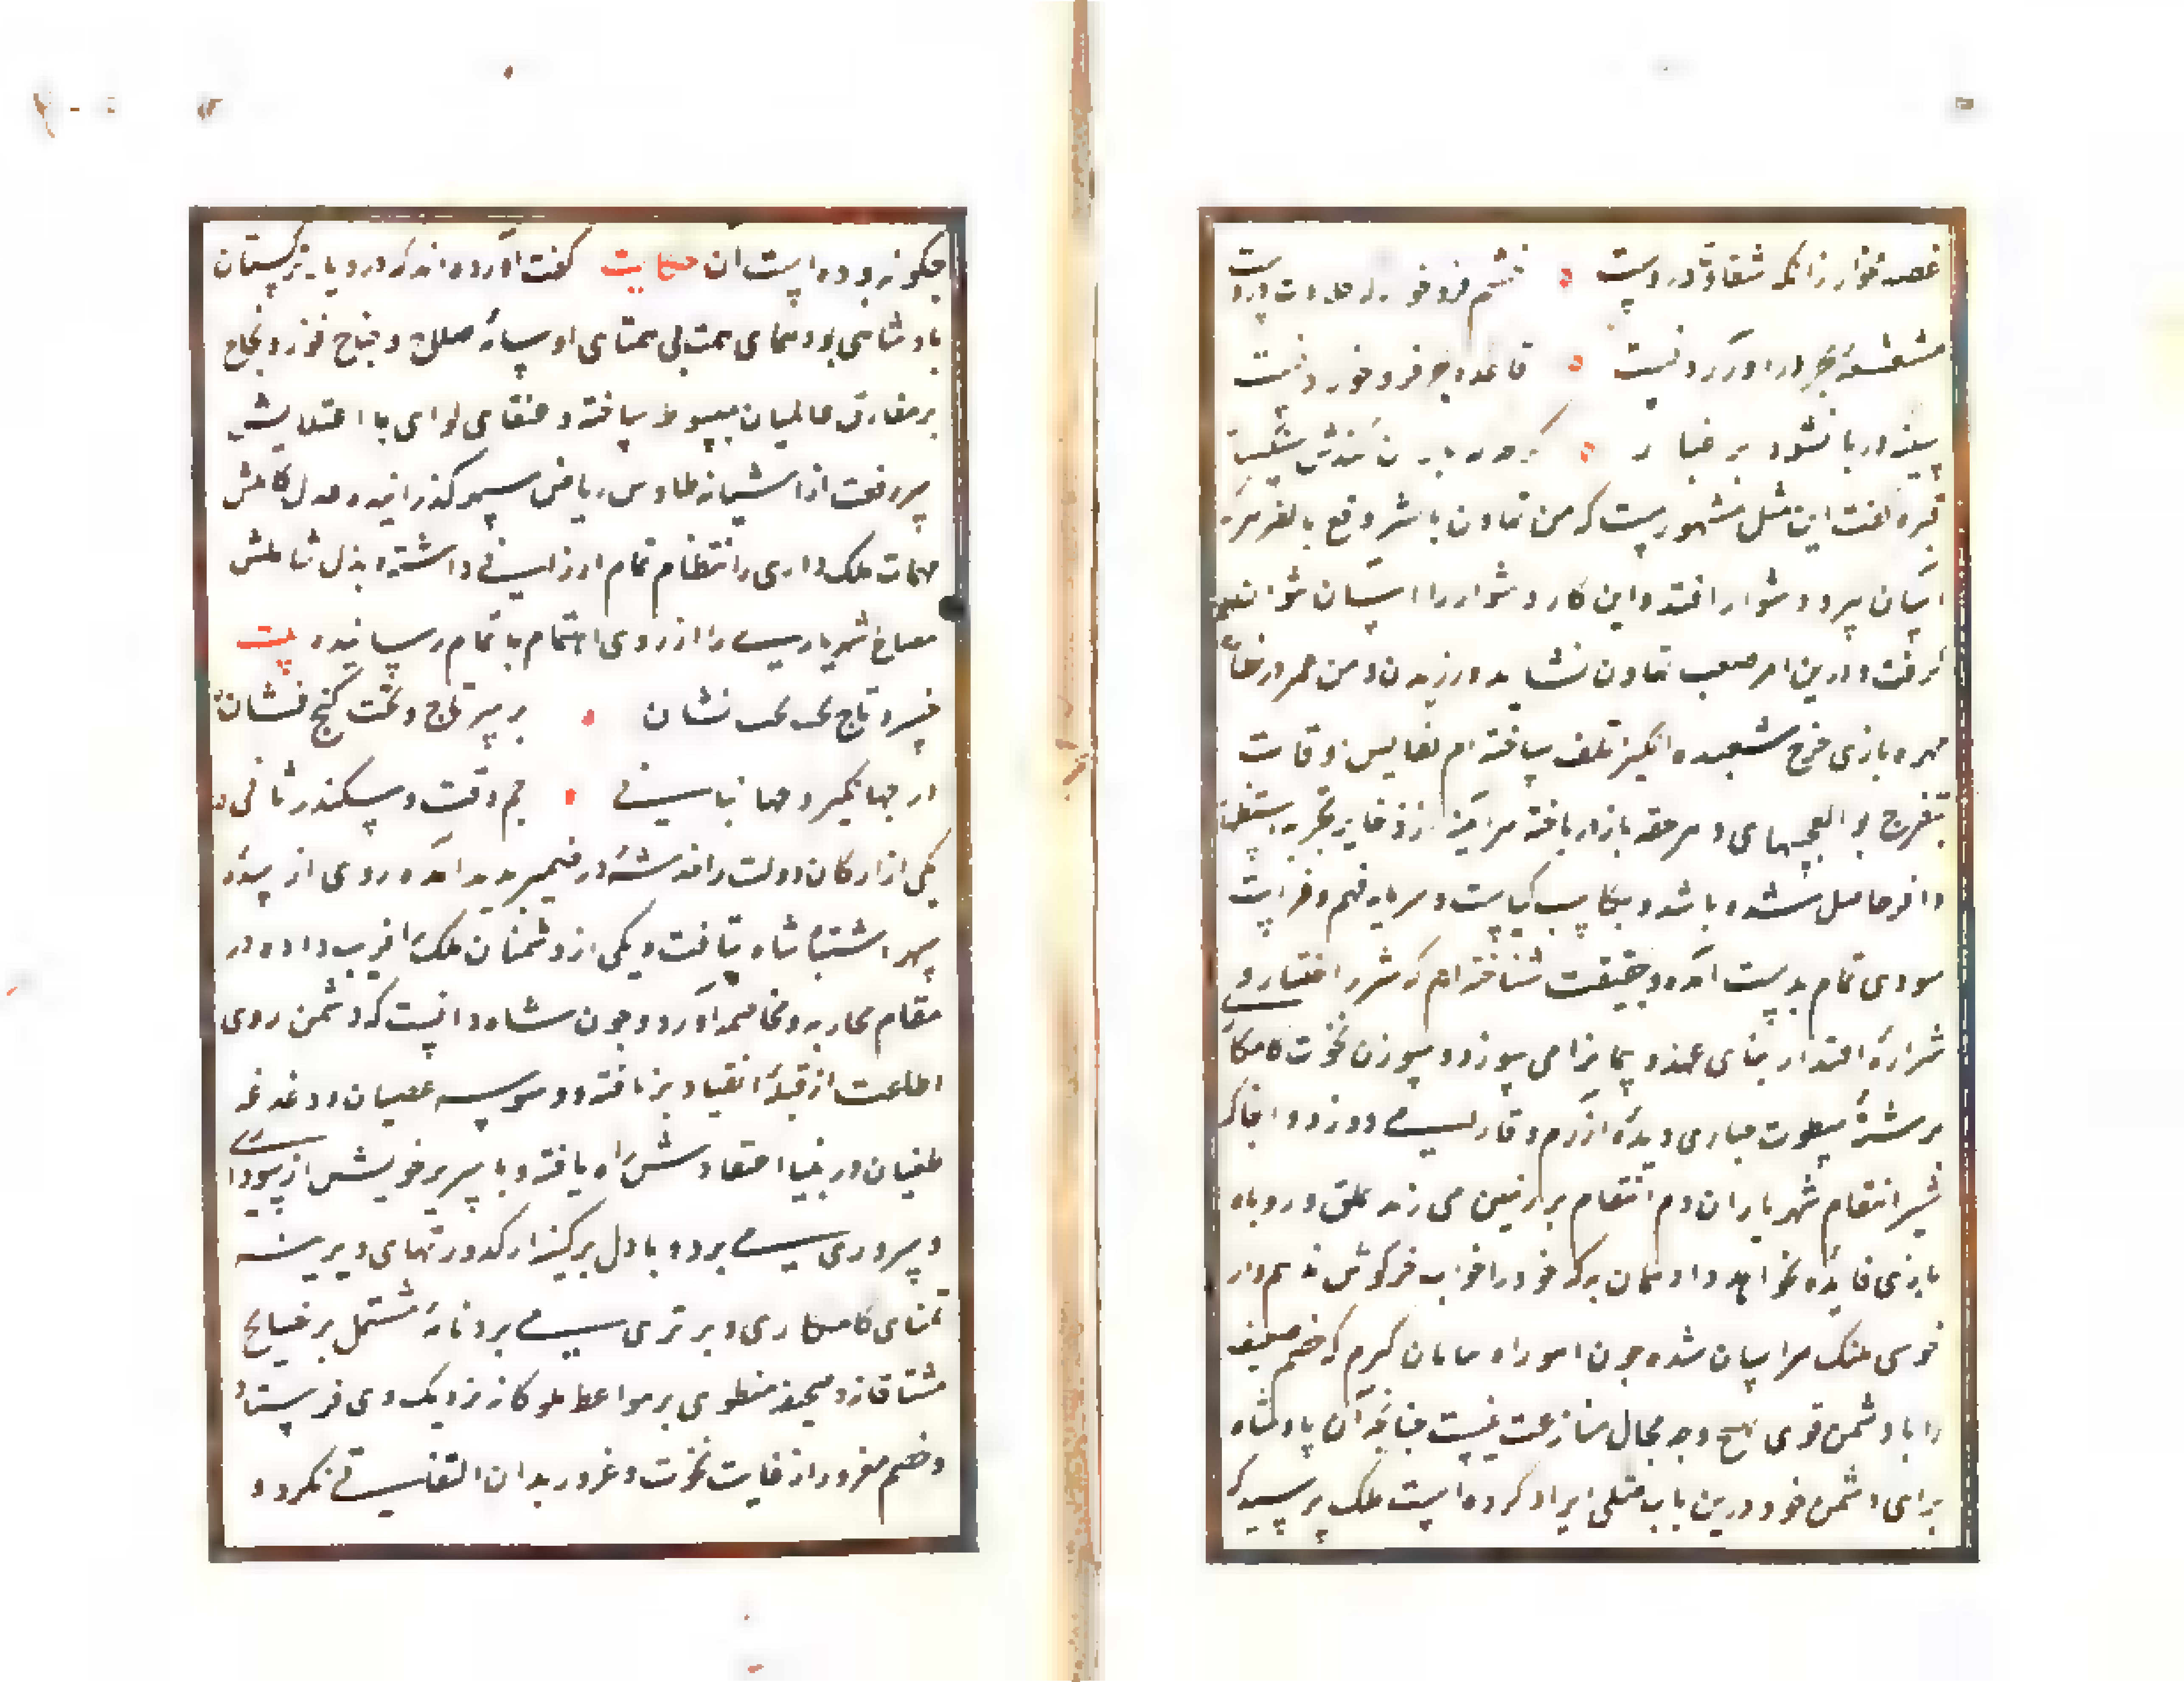 غصه مخوار زانکه شقاوت دروست خشم فرو خور که حلاوت دروست
قاعده جز فرو خورد نیست
سینه دریا نشود پر غبار
تیره گفت این مثل مشهورست که من تهاون بالشر وقع بالضر هر که
آسان سپرد دشوار افتد و این کار دشوار را آسان نتوان
گرفت و درین امر صعب تهاون نشاید ورزیدن و من عمر در تماشای
مهره بازی چرخ شعبده انگیز تلف ساخته‌ام نفایس اوقات
بتفرج بو العجبهای دهر حقه باز در باخته هر آینه از ذخایر تجربه استظهار
وافر حاصل شده باشد و مکاسب کیاست و سرمایه فهم و فراست
سودی تمام بدست آمده و حقیقت شناخته‌ام که شرر اختیار و
شراره اقتدار بنای عهد و پیمانرا می سوزد و سوزن نخوت کامکاری
بر شتهٔ سطوت جباری دیدهٔ آزرم وقار میدوزد و انجا که
شیر انتقام شهریاران دم انتقام بر زمین می زند تملق و روباه
بازی فایده نخواهد داد همان به که خود را خواب خرگوش ندهم و از
خوی پلنک هراسان شده چون آهو راه بیابان گیرم که خصم ضعیف
را با دشمن قوی هیچ وجه مجال منازعت نیست چنانچه آن پادشاه
برای دشمن خود درین باب مثلی ایراد کرده است ملک پرسید که
چکونه بوده است آن حکایت گفت آورده اند که در دیار ترکستان
پادشاهی بود همای همت بی همتای او سایهٔ صلاح و جناح فوز و نجاح
بر مفارق عالمیان مبسوط ساخته و عنقای لوای با اعتلایش
سر رفعت از آشیانه طاوس ریاض سپهر کذرانیده عدل کاملش
مهمات ملک داری را انتظام تمام ارزانی داشته و بذل شاملش
مصالح شهریاری را از روی اهتمام باتمام رسانیده بیت
خسرو تاج بخش تخت نشان بر سر تاج و تخت گنج فشان
در جهانگیر و جهانبانی جم وقت و سکندر ثانی
یکی از ارکان دولت را خدشهٔ در ضمیر پدید آمده روی از سدهٔ
سپهر اشتباه شاه بتافت و یکی از دشمنان ملک را فریب داده در
مقام محاربه و مخاصمه آورد و چون شاه دانست که دشمن روی
اطاعت از قبلهٔ انقیاد بر تافته و وسوسه عصیان و دغدغه
طغیان در بنیاد اعتقادش راه یافته و با سر پر خویش از سودای
و سروری می برد و با دل پر کینه از کدورتهای دیرینه
تمنای کامکاری و برتری می برد نامهٔ مشتمل بر نصایح
مشفقانه و صحیفه منطوی بر مواعظ ملوکانه نزدیک وی فرستاد
و خصم مغرور از غایت نخوت و غرور بدان التفاتی نکرد و